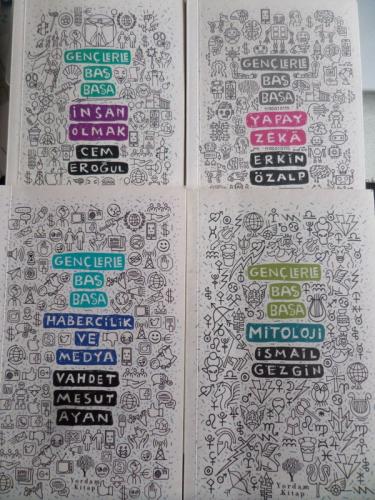 GENÇLERLE
BAŞ
BAŞA
İNSAN
OLMAK
CEM
EROĞUL
GENÇLERLE
BAŞ
BAŞA
YAPAY
ZEKÂ
ERKİN
ÖZALP
GENÇLERLE
BAŞ
BAŞA
HABERCİLİK
VE
MEDYA
VAHDET
MESUT
AYAN
Yordam
Kitap
GENÇLERLE
BAŞ
BAŞA
MİTOLOJİ
İSMAİL
GEZGİN
Yordam
Kitap